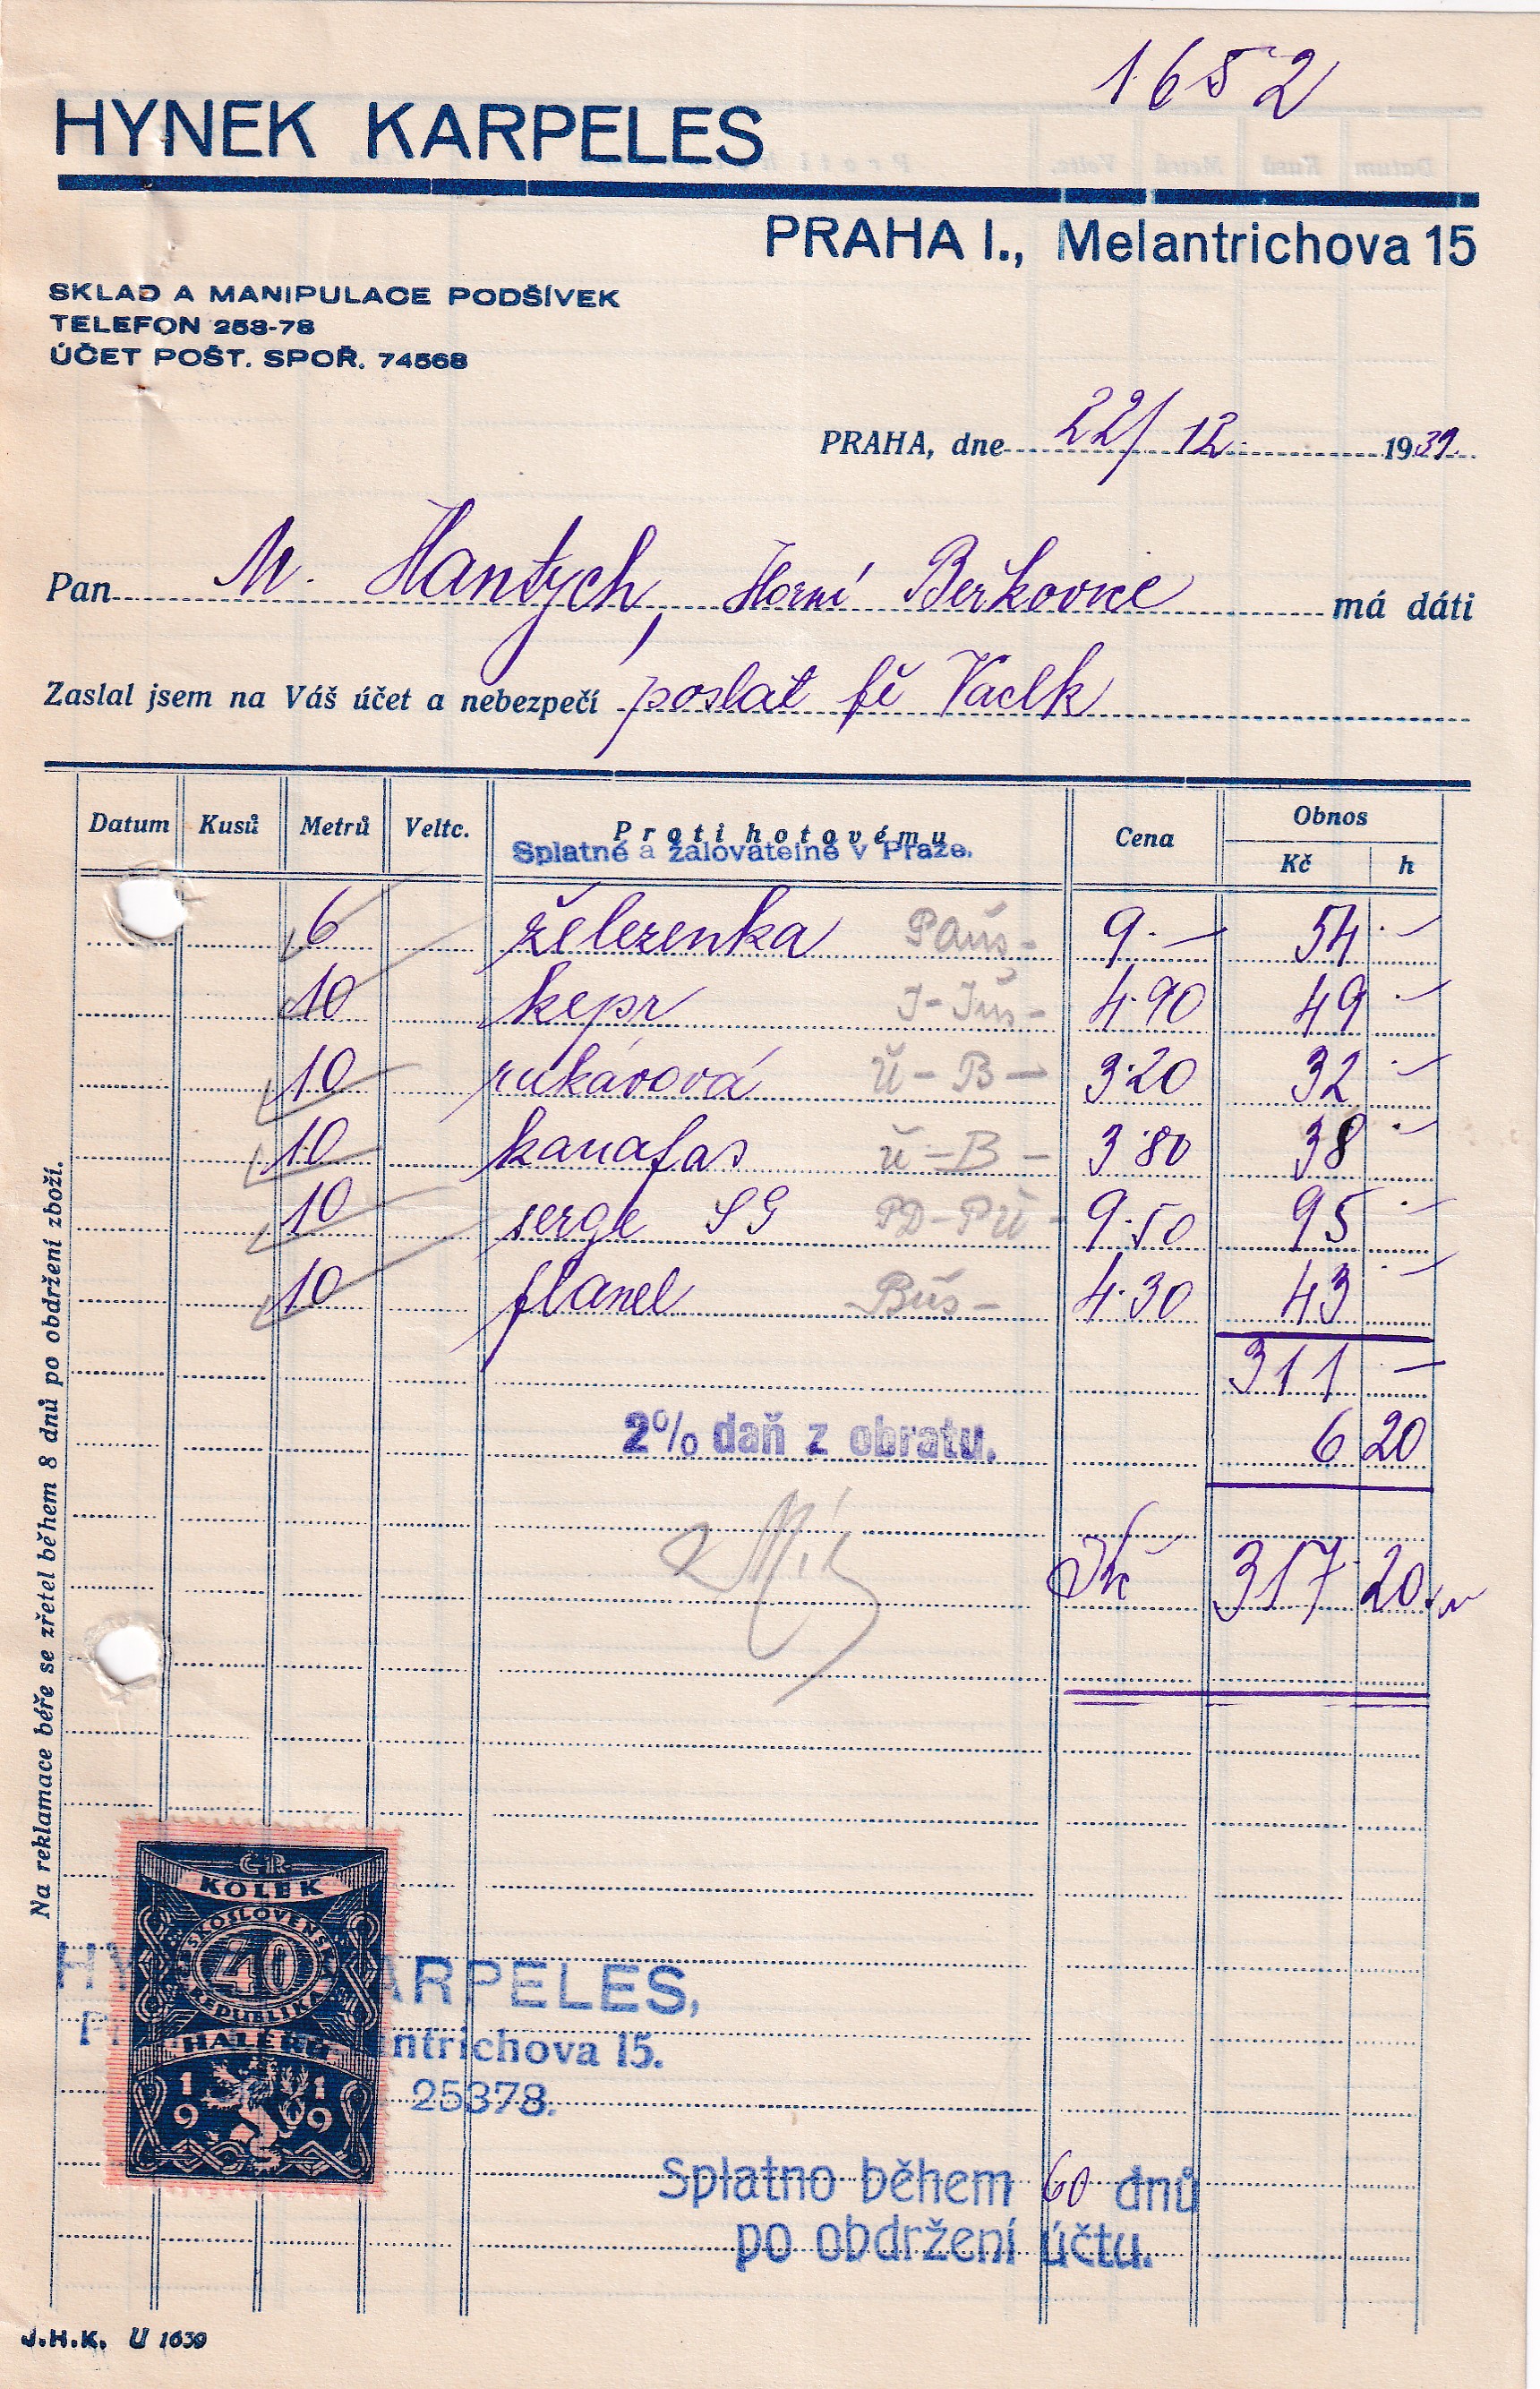 1652
HYNEK KARPELES
PRAHA I., Melantrichova 15
SKLAD A MANIPULACE PODŠÍVEK
TELEFON 253-78
ÚČET POŠT. SPOŘ. 74568
PRAHA, dne 22/12. 1931.
Pan M. Hantych, Horní Beřkovice má dáti
Zaslal jsem na Váš účet a nebezpečí poslat fě Vaclk
Datum Kusů Metrů Veltc. Proti hotovému Cena Obnos
Splatné a žalovatelné v Praze.
Kč h
6 železenka Paüs- 9.— 54 .—
10 kepr 4.90 49 .—
10 rukávová Ü-B- 3.20 32 .—
10 kanafas Ü-B- 3.80 38 .—
10 serge SG PD-PÜ- 9.50 95 .—
10 flanel Büs- 4.30 43 .—
311 —
2% daň z obratu. 6 20
Kč 317 20
Na reklamace béře se zřetel během 8 dnů po obdržení zboží.
ČR
KOLEK
ČESKOSLOVENSKÁ
40
REPUBLIKA
HALÉŘŮ
1919
HY ARPELES,
P antrichova 15.
25378.
Splatno během 60 dnů
po obdržení účtu.
J.H.K. U 1639